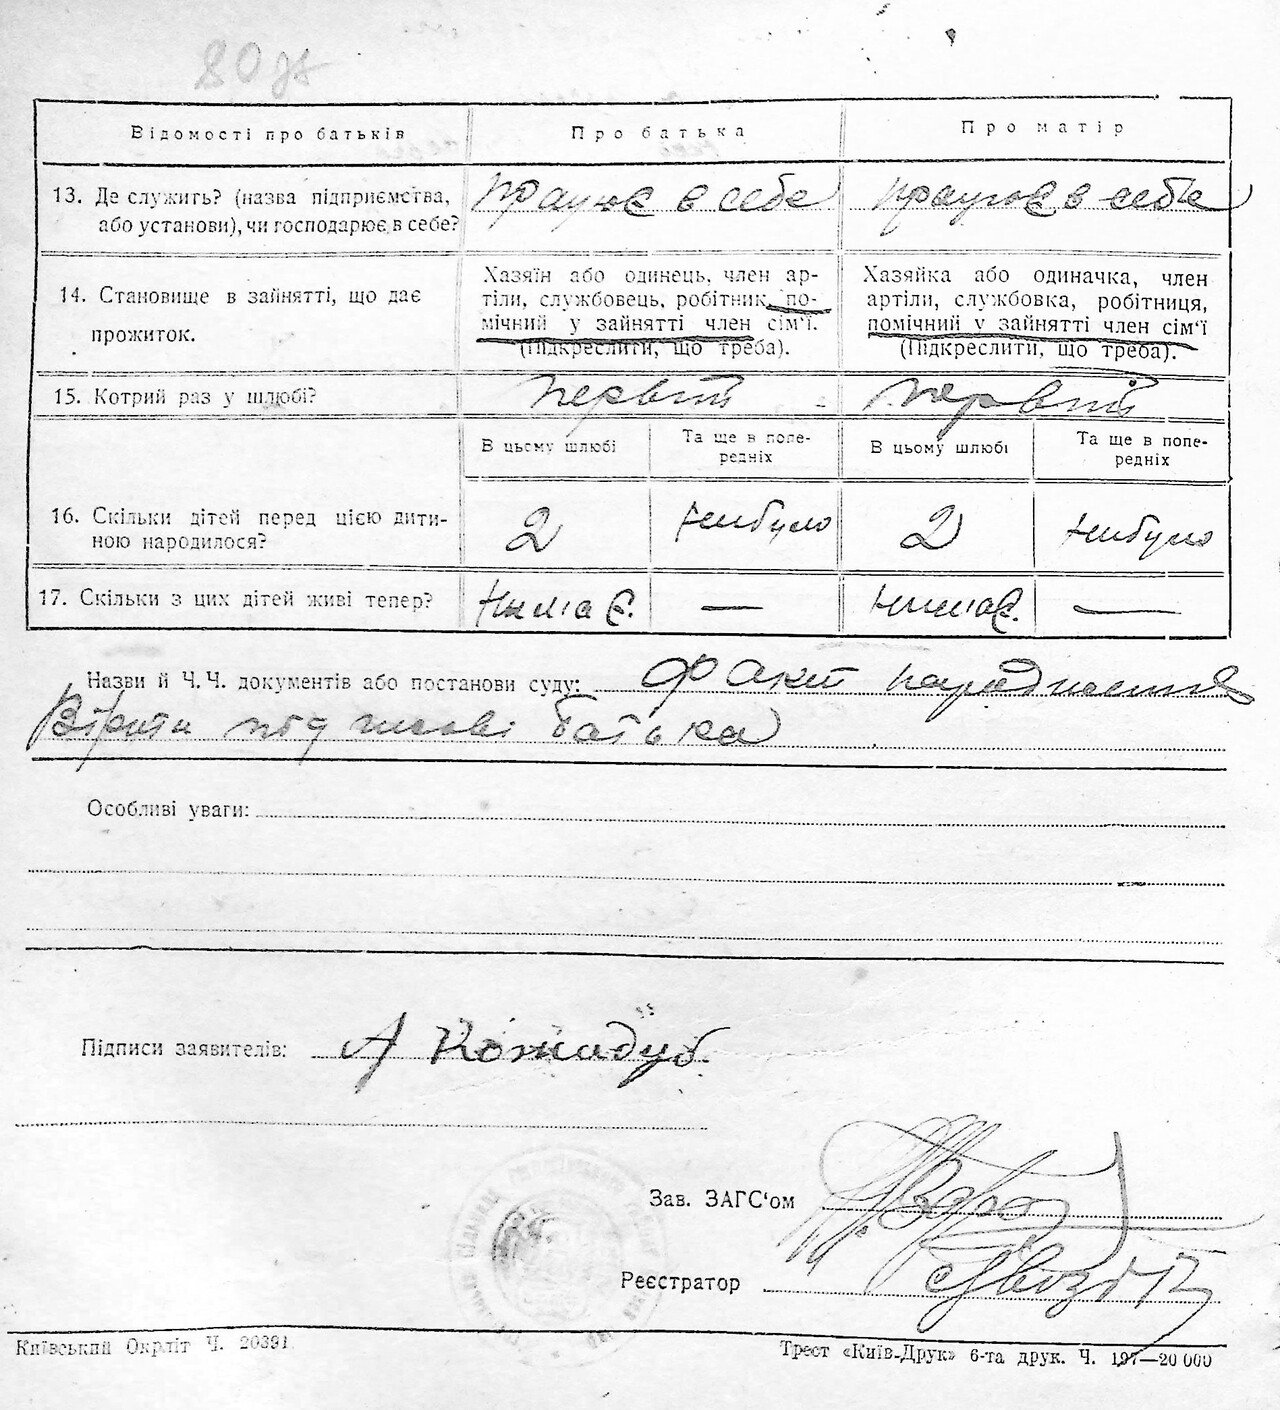 80
Відомості про батьків
Про батька
Про матір
13. Де служить? (назва підприємства,
або установи), чи господарює в себе?
працює в себе
працює в себе
14. Становище в зайнятті, що дає
прожиток.
Хазяїн або одинець, член ар-
тіли, службовець, робітник, по-
мічний у зайнятті член сім'ї.
(Підкреслити, що треба).
Хазяйка або одиначка, член
артіли, службовка, робітниця,
помічний у зайнятті член сім'ї
(Підкреслити, що треба).
15. Котрий раз у шлюбі?
первий
первий
В цьому шлюбі
Та ще в попе-
редніх
В цьому шлюбі
Та ще в попе-
редніх
16. Скільки дітей перед цією дити-
ною народилося?
2
небуло
2
небуло
17. Скільки з цих дітей живі тепер?
немає.
—
немає.
—
Назви й Ч. Ч. документів або постанови суду: факт народження
під батька
Особливі уваги:
Підписи заявителів: А Кожадуб.
Зав. ЗАГС'ом
Реєстратор
Київський Окрліт Ч. 20391.
Трест «Київ-Друк» 6-та друк. Ч. 197—20 000